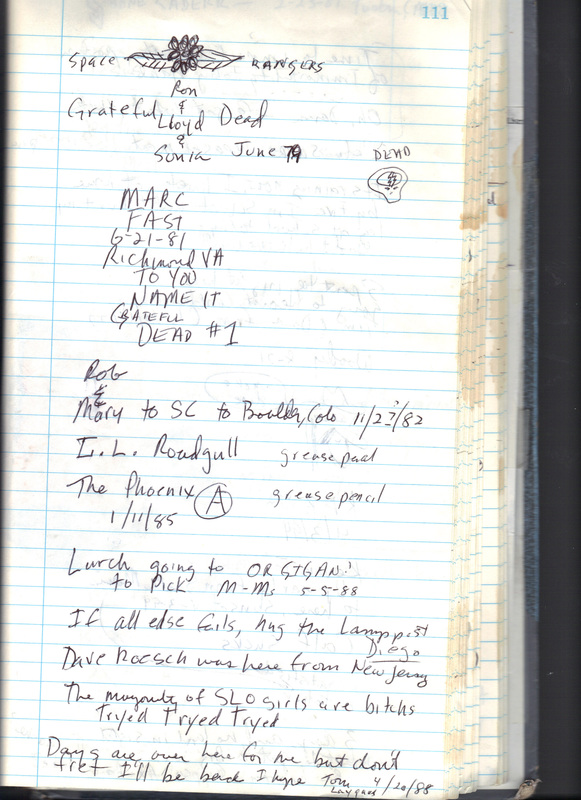 111
Space RANGERS
Ron
&
Grateful Lloyd Dead
&
Sonia June 79
DEAD
MARC
FAST
6-21-81
Richmond VA
TO YOU
NAME IT
GRATEFUL
DEAD #1
Rob
&
Mary to SC to Boulder, Colo 11/2?/82
I. L. Roadgull grease pencil
The Phoenix A grease pencil
1/11/85
Lurch going to
to Pick M-Ms 5-5-88
If all else fails, hug the Lamp post
Diego
Dave Roesch was here from New Jersey
The majority of SLO girls are bitchs
Tryed Tryed Tryed
Days are over here for me but don't
fret I'll be back I hope Tom 4/20/88